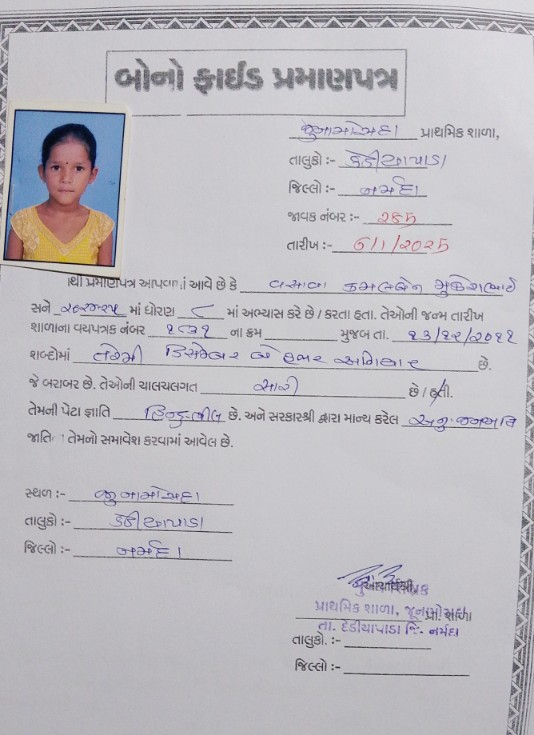 બોનો ફાઈડ પ્રમાણપત્ર
જુનામોઝદા પ્રાથમિક શાળા,
તાલુકો :- ડેડીયાપાડા
જિલ્લો :- નર્મદા
જાવક નંબર :- 285
તારીખ :- 6/1/2025
થી પ્રમાણપત્ર આપવામાં આવે છે કે વસાવા કમલાબેન મુકેશભાઈ
સને ૨૦૨૪/૨૫ માં ધોરણ ૮ માં અભ્યાસ કરે છે / કરતા હતા. તેઓની જન્મ તારીખ
શાળાના વયપત્રક નંબર ના ક્રમ મુજબ તા. ૧૩/૧૨/૨૦૧૧
શબ્દોમાં તેરમી ડિસેમ્બર બે હજાર અગિયાર છે.
જે બરાબર છે. તેઓની ચાલચલગત સારી છે / હતી.
તેમની પેટા જ્ઞાતિ હિન્દુ ભીલ છે. અને સરકારશ્રી દ્વારા માન્ય કરેલ અનુ. જનજાતિ
જાતિ તેમનો સમાવેશ કરવામાં આવેલ છે.
સ્થળ :- જુનામોઝદા
તાલુકો :- ડેડીયાપાડા
જિલ્લો :- નર્મદા
પ્રાથમિક શાળા, જૂના મોઝદા
તા. દેડીયાપાડા જિ. નર્મદા
તાલુકો. :-
જિલ્લો :-